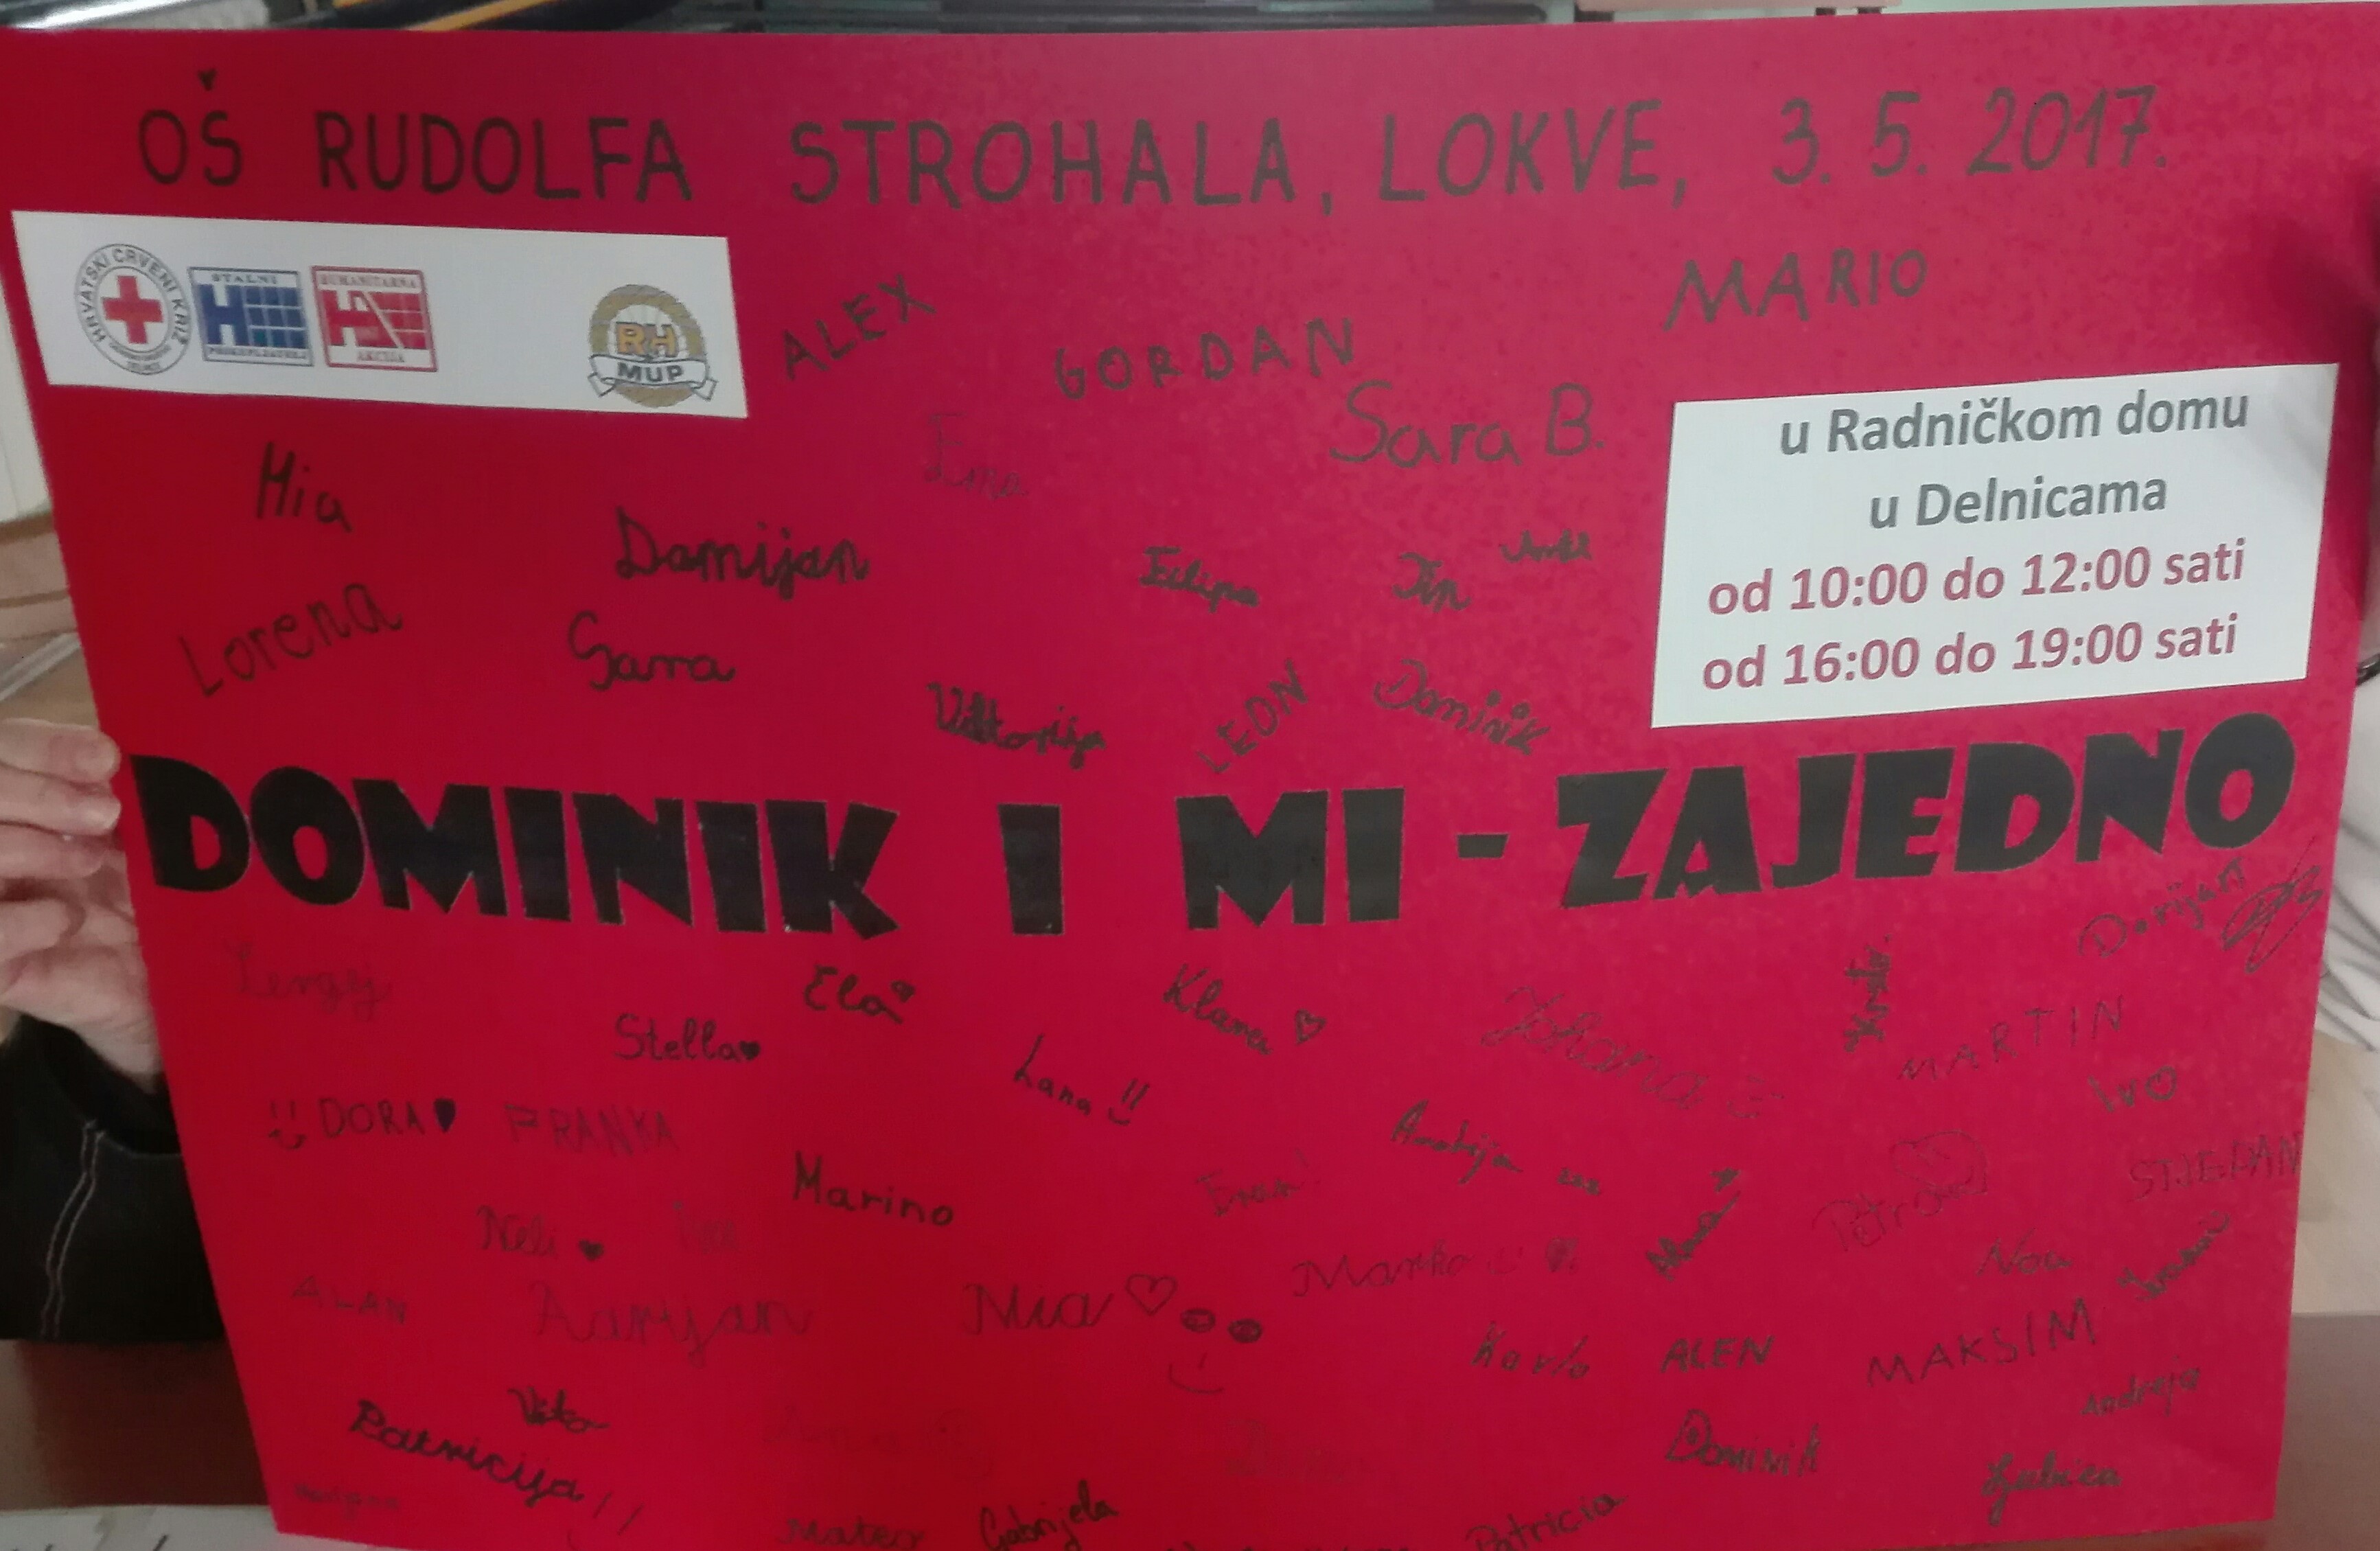 OŠ RUDOLFA STROHALA, LOKVE, 3. 5. 2017.
HRVATSKI CRVENI KRIŽ
STALNI
PRIKUPLJATELJ
HUMANITARNA
AKCIJA
RH
MUP
ALEX
GORDAN
MARIO
Sara B.
Ema
u Radničkom domu
u Delnicama
od 10:00 do 12:00 sati
od 16:00 do 19:00 sati
Mia
Damijan
Filipa
Tin
Lorena
Sara
Viktorija
LEON
Dominik
DOMINIK I MI - ZAJEDNO
Dorijan
Ela
Klara
Stella
Lana !!
Johana
MARTIN
IVO
DORA
FRANKA
Marino
Fran!
Andrija
Petra
STJEPAN
Neli
Marko
Noa
ALAN
Mia
Karlo
ALEN
MAKSIM
Andreja
Vito
Patricija !!
Dominik
Ljubica
Mateo
Gabrijela
Patricia